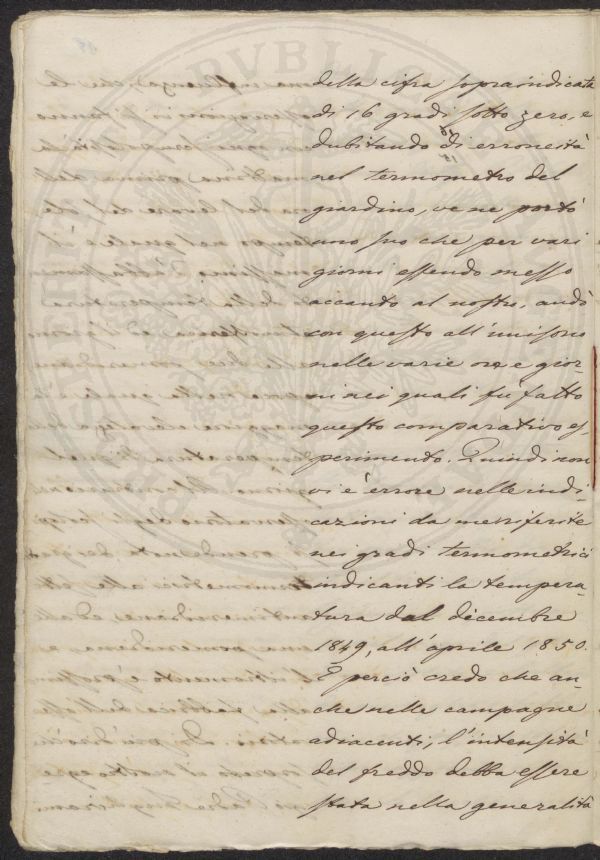 della cifra sopraindicata
di 16 gradi sotto zero, e
dubitando di erroneità
nel termometro del
giardino, ve ne portò
uno suo che per vari
giorni essendo messo
accanto al nostro, andò
con questo all'unisono
nelle varie ore e gior-
ni nei quali fu fatto
questo comparativo es-
perimento. Quindi non
vi è errore nelle indi-
cazioni da me riferite
nei gradi termometrici
indicanti la tempera-
tura dal decembre
1849, all'aprile 1850.
E perciò credo che an-
che nelle campagne
adiacenti, l'intensità
del freddo debba essere
stata nella generalità